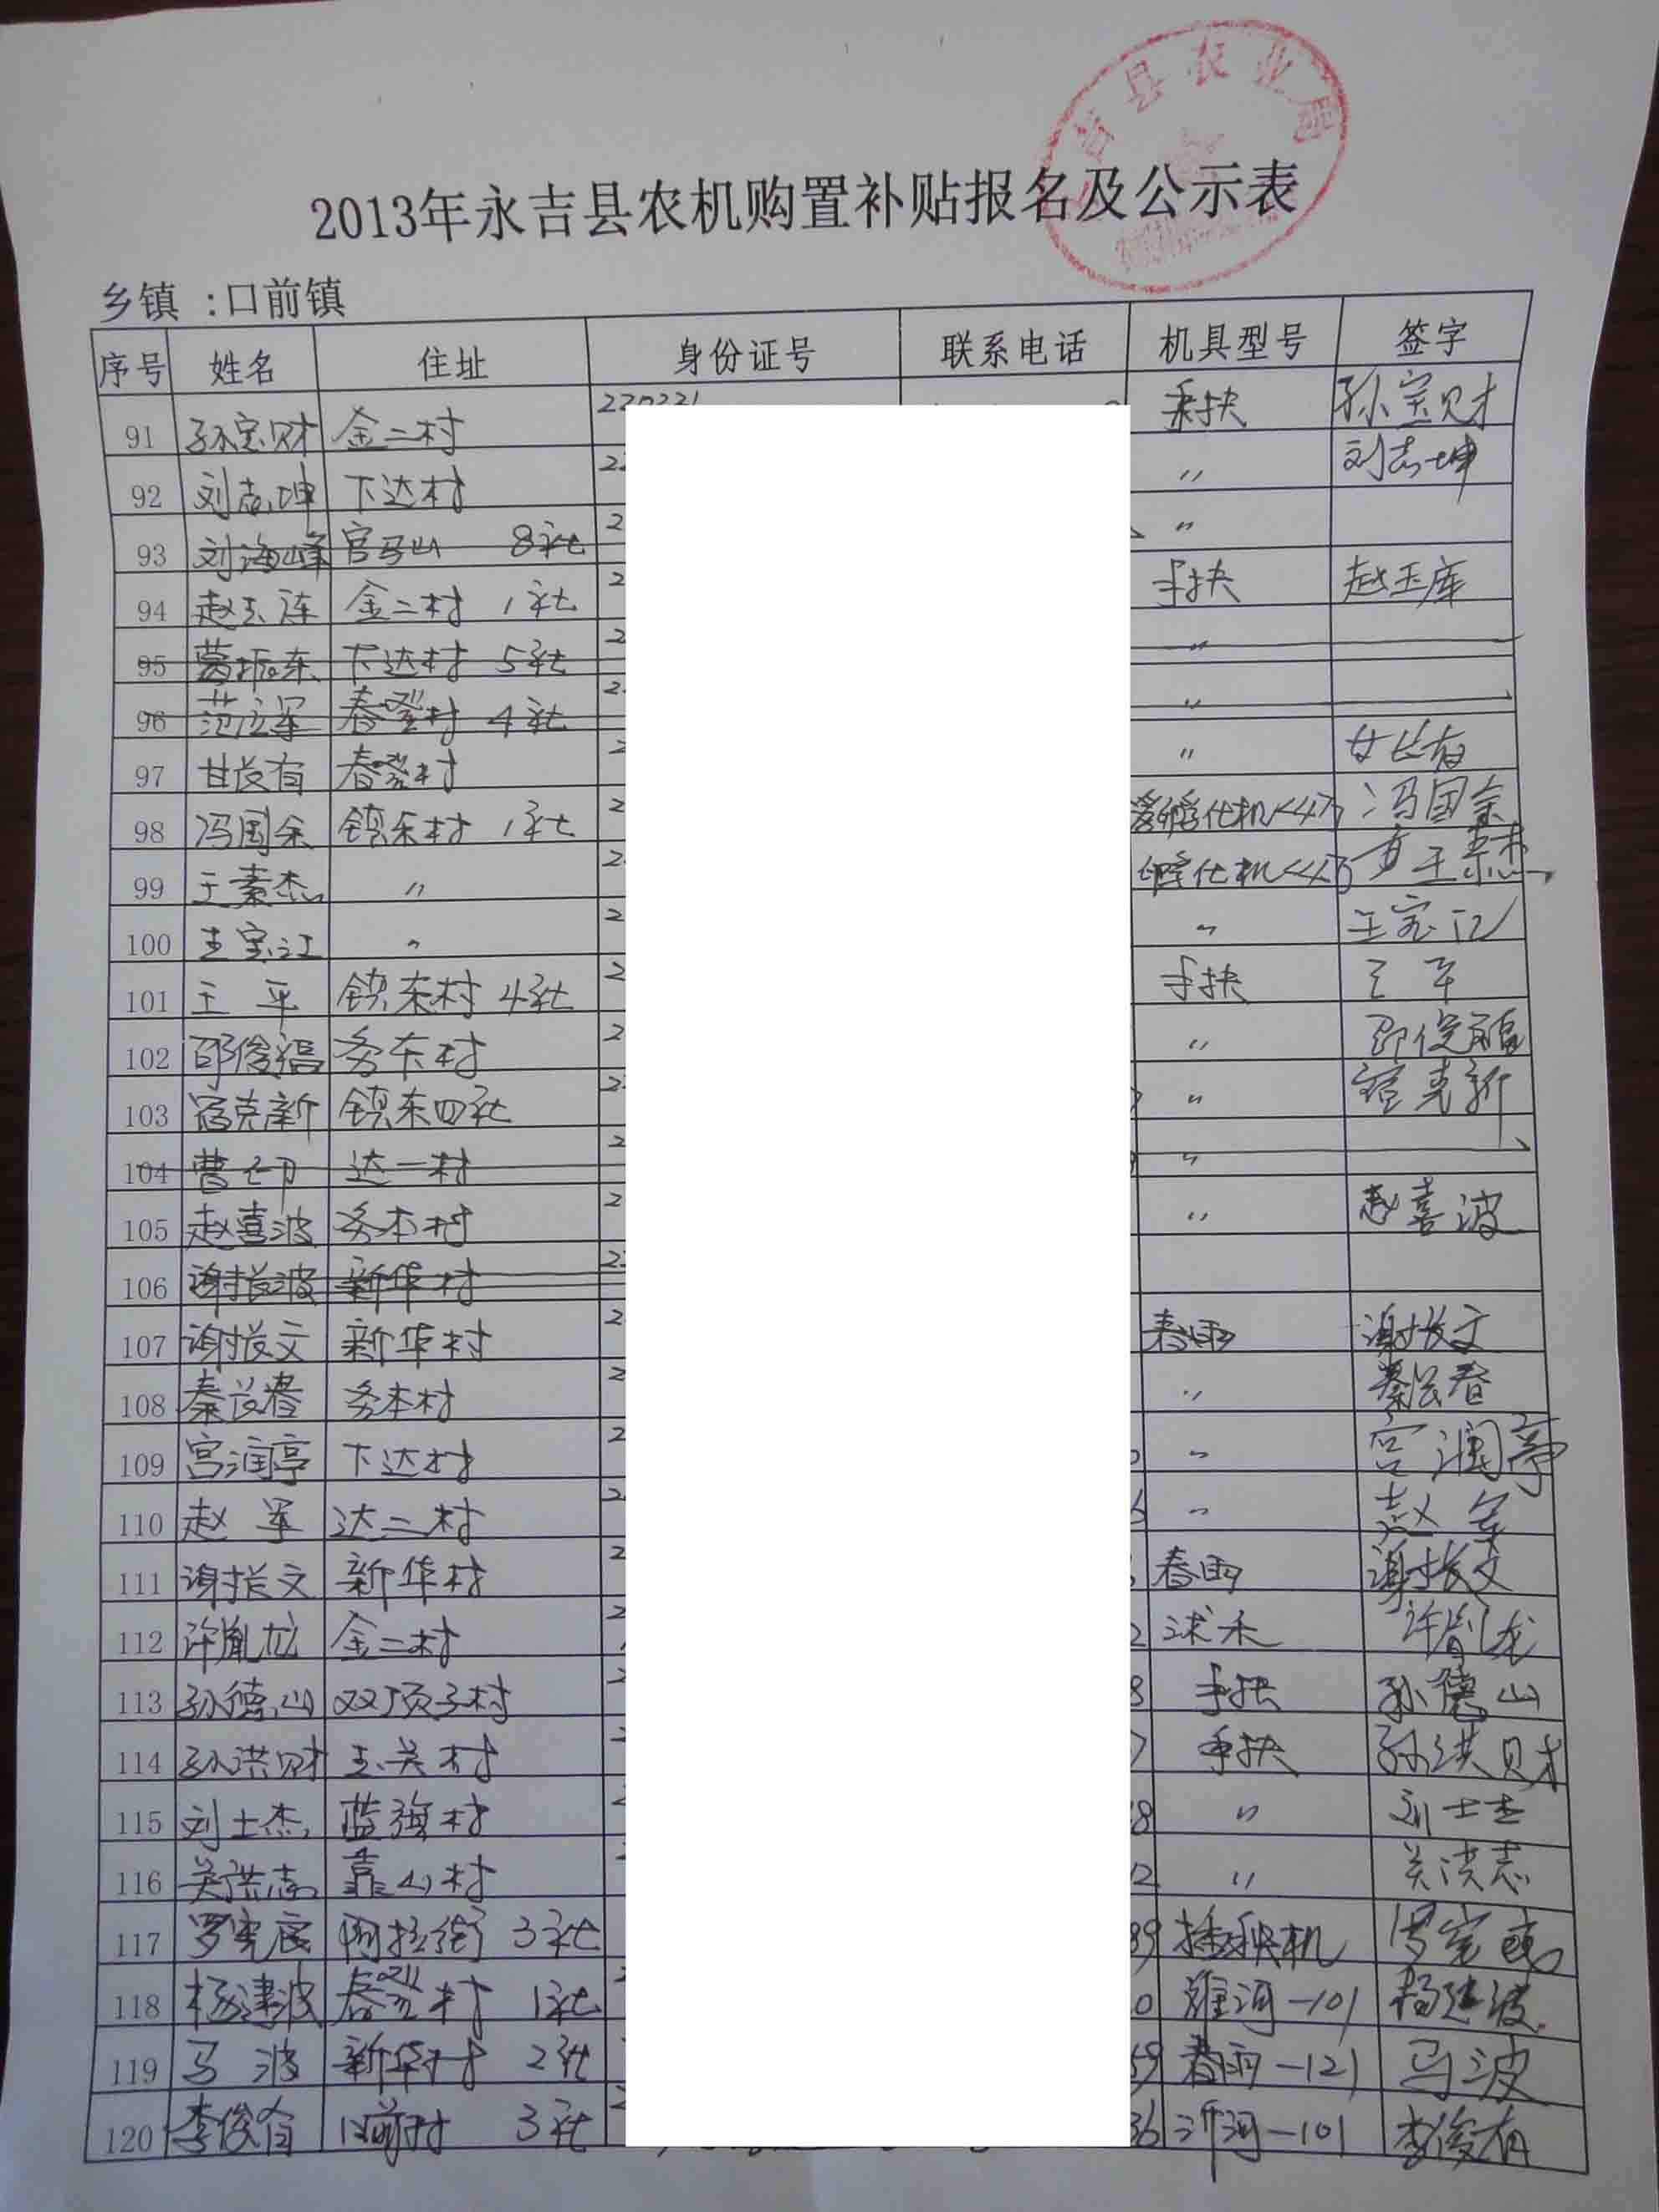 县农业局
2013年永吉县农机购置补贴报名及公示表
乡镇 :口前镇
序号 姓名 住址 身份证号 联系电话 机具型号 签字
91 孙宝财 金二村 220221 手扶 孙宝财
92 刘志坤 下达村 〃 刘志坤
93 刘海峰 官马山 8社 〃
94 金二村 1社 手扶 赵玉库
95 葛振东 下达村 5社 〃
96 范立军 春登村 4社 〃
97 甘长有 春登村 〃
98 冯国余 镇东村 1社 孵化机 冯国余
99 王素杰 〃 孵化机 王素杰
100 王宝江 〃 〃 王宝江
101 王平 镇东村 4社 手扶 王平
102 邵俊福 务本村 〃 邵俊福
103 宿克新 镇东四社 〃 宿克新
104 曹 达一村 〃
105 赵喜波 务本村 〃 赵喜波
106 谢长波 新华村
107 谢长文 新华村 春雨 谢长文
108 秦长春 务本村 〃 秦长春
109 宫润亭 下达村 〃 宫润亭
110 赵军 达二村 〃 赵军
111 谢长文 新华村 春雨 谢长文
112 许胤龙 金二村 许胤龙
113 孙德山 双顶子村 手扶 孙德山
114 孙洪财 村 手扶 孙洪财
115 刘士杰 蓝旗村 〃 刘士杰
116 关洪志 靠山村 〃 关洪志
117 罗宪 阿拉街 3社 插秧机 罗宪
118 杨建波 春登村 1社 -101 杨建波
119 马波 新华村 2社 春雨-121 马波
120 李俊有 口前村 3社 -101 李俊有